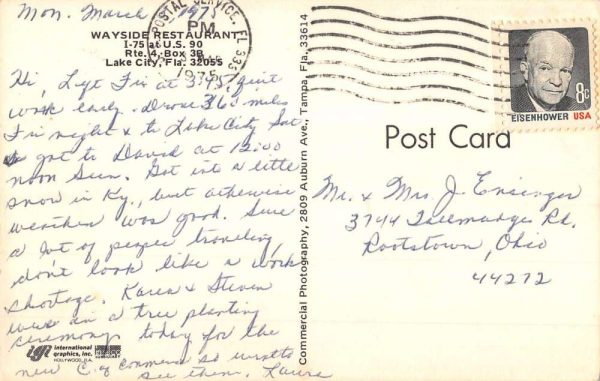 Mon. March 1975
POSTAL SERVICE, FL 333
PM
1975
WAYSIDE RESTAURANT
I-75 at U.S. 90
Rte. 4, Box 3B
Lake City, Fla. 32055
Hi, Left Fri at 3:45, quit
work early. Drove 360 miles
Fri night & to Lake City Sat
& got to David at 12:00
noon Sun. Got into a little
snow in Ky., but otherwise
weather was good. Sure
a lot of people traveling,
don't look like a work
shortage. Karen & Steven
was in a tree planting
ceremony today for the
new C. of Commerce so went to
see them. Laura
international
graphics, inc.
HOLLYWOOD, FLA.
Commercial Photography, 2809 Auburn Ave., Tampa, Fla. 33614
8c
EISENHOWER USA
Post Card
Mr. & Mrs. J. Ensinger
3744 Rd.
Rootstown, Ohio
44272